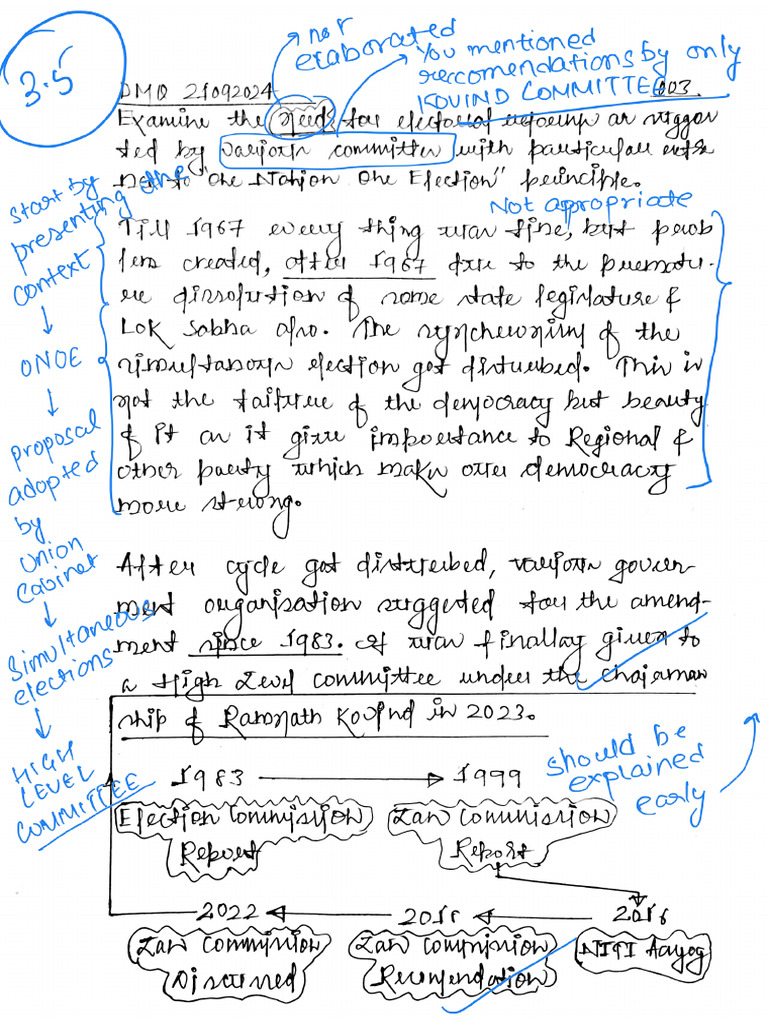 3.5
not
elaborated
You mentioned
reccomendations by only
KOVIND COMMITTEE
DMQ 21092024
003.
Examine the need for electoral reforms as sugges
ted by various committee with particular refe
rence to "One Nation One Election" principle.
Not appropriate
Start by
presenting the
context
ONOE
proposal
adopted
by
Union
Cabinet
Simultaneous
elections
HIGH
LEVEL
COMMITTEE
Till 1967 every thing was fine, but prob
lem created, after 1967 due to the prematu-
re dissolution of some state legislature &
Lok Sabha also. The synchronizing of the
simultaneous election got disturbed. This is
not the failure of the democracy but beauty
of it as it give importance to Regional &
other party which makes our democracy
more strong.
After cycle got distrubed, various govern-
ment organisation suggested for the amend-
ment since 1983. It was finallay given to
a High Level committee under the chairman
ship of Ramnath Kovind in 2023.
should be
explained
early
1983 1999
Election Commission Law Commission
Report Report
2022 2018 2016
Law Commission Law Commission NITI Aayog
Discussed Recomendation